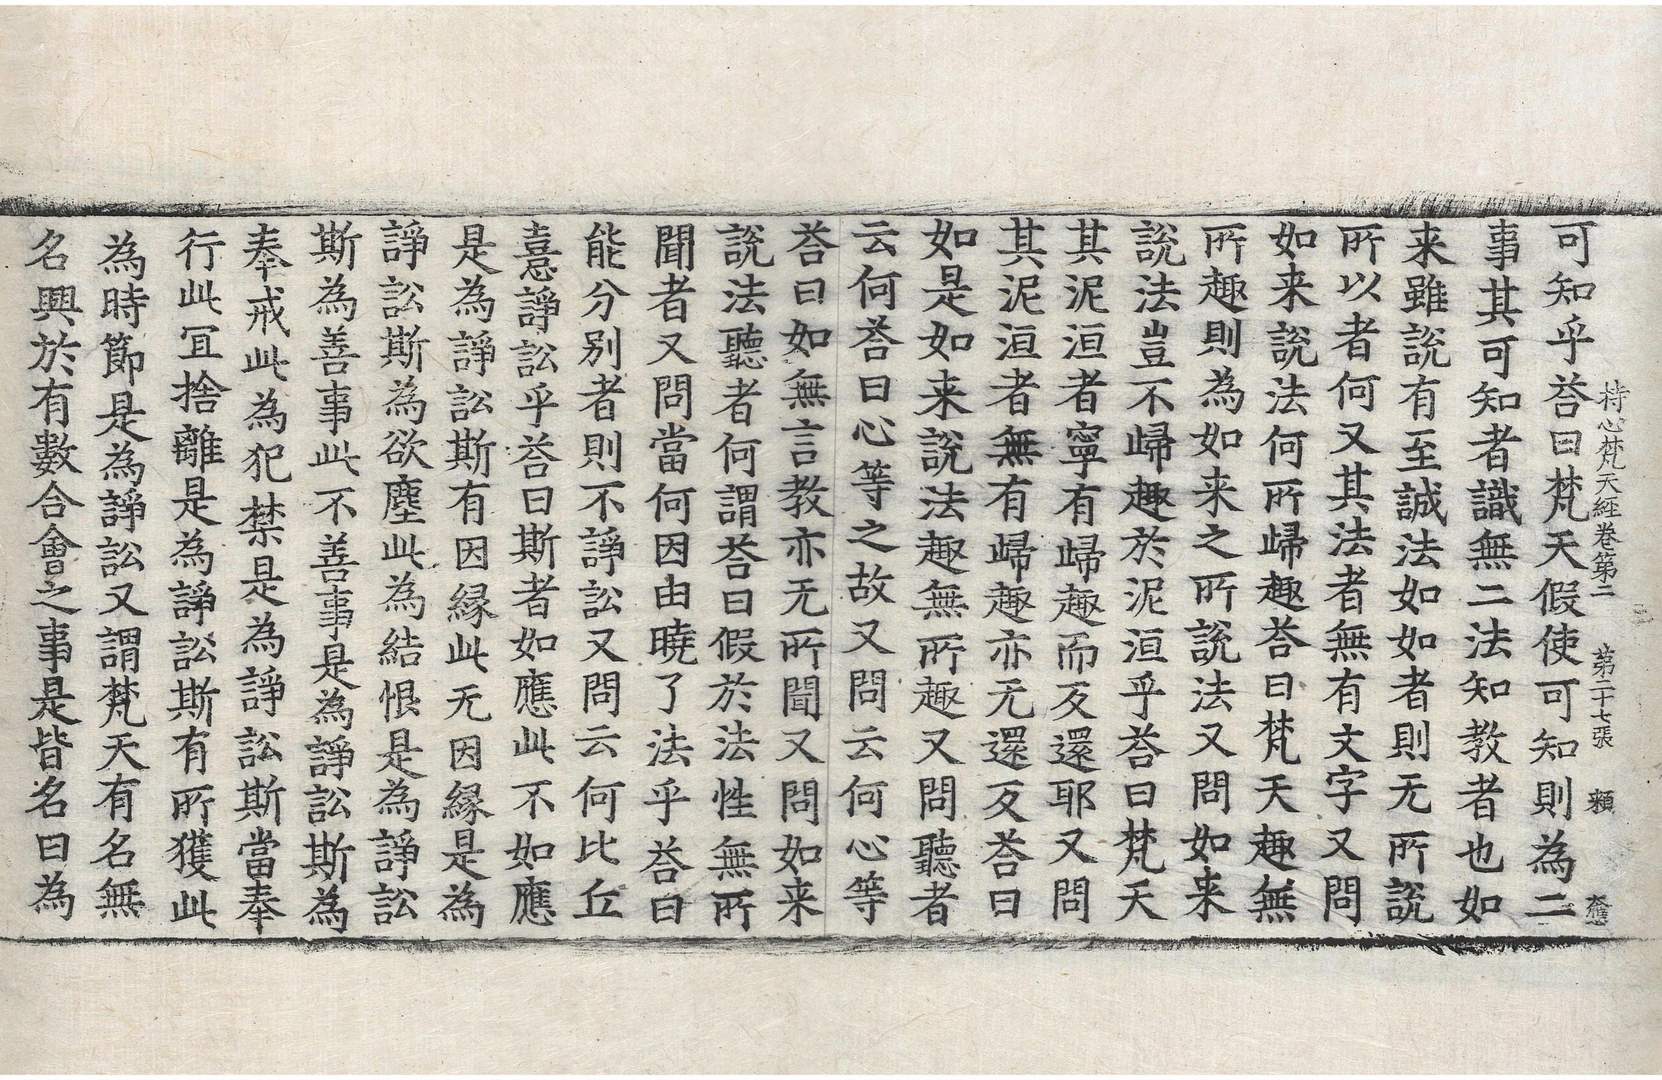 持心梵天經卷第二　第二十七張　賴
可知乎荅曰梵天假使可知則為二
事其可知者識無二法知教者也如
来雖説有至誠法如如者則无所説
所以者何又其法者無有文字又問
如来説法何所歸趣荅曰梵天趣無
所趣則為如来之所説法又問如来
説法豈不歸趣於泥洹乎荅曰梵天
其泥洹者寧有歸趣而反還耶又問
其泥洹者無有歸趣亦无還反荅曰
如是如来説法趣無所趣又問聽者
云何荅曰心等之故又問云何心等
荅曰如無言教亦无所聞又問如来
説法聽者何謂荅曰假於法性無所
聞者又問當何因由曉了法乎荅曰
能分别者則不諍訟又問云何比丘
憙諍訟乎荅曰斯者如應此不如應
是為諍訟斯有因縁此无因縁是為
諍訟斯為欲塵此為結恨是為諍訟
斯為善事此不善事是為諍訟斯為
奉戒此為犯禁是為諍訟斯當奉
行此宜捨離是為諍訟斯有所獲此
為時節是為諍訟又謂梵天有名無
名興於有數合會之事是皆名曰為